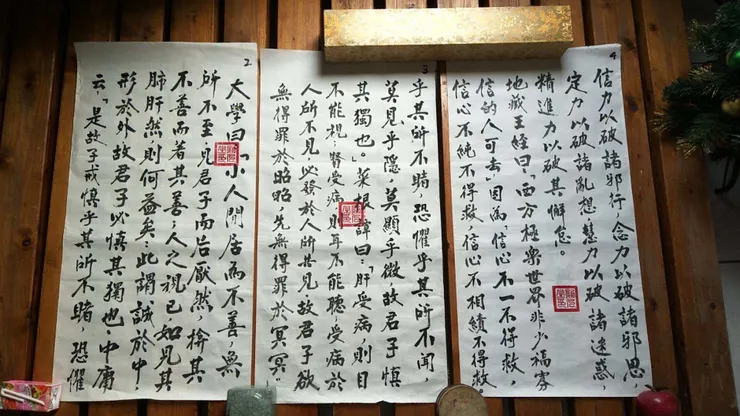 2
大學曰「小人閒居為不善,無
所不至,見君子而后厭然,揜其
不善而著其善;人之視己如見其
肺肝然,則何益矣;此謂:誠於中
形於外故君子必慎其獨也中庸
云「是故子戒慎乎其所不睹,恐懼
3
乎其所不睹,恐懼乎其所不聞,
莫見乎隱莫顯乎微故君子慎
其獨也。菜根譚曰「肝受病,則目
不能視;腎受病,則耳不能聽受病於
人所不見,必發於人所共見故君子欲
無得罪於昭昭先無得罪於冥冥」
4
信力以破諸邪行 念力以破諸邪思,
定力以破諸亂想慧力以破諸迷惑,
精進力以破其懈怠。
地藏王經曰:「西方極樂世界非少福寡
信的人可去」因為「信心不一不得救,
信心不純不得救,信心不相續不得救。